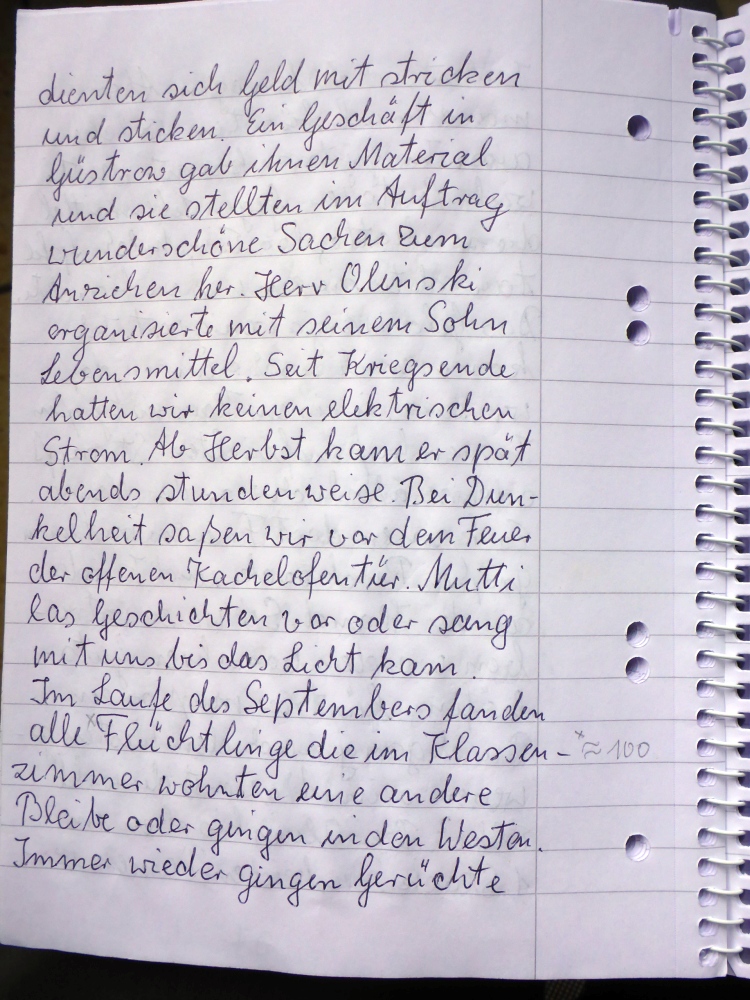 dienten sich Geld mit stricken
und sticken. Ein Geschäft in
Güstrow gab ihnen Material
und sie stellten im Auftrag
wunderschöne Sachen zum
Anziehen her. Herr Olinski
organisierte mit seinem Sohn
Lebensmittel. Seit Kriegsende
hatten wir keinen elektrischen
Strom. Ab Herbst kam er spät
abends stundenweise. Bei Dun-
kelheit saßen wir vor dem Feuer
der offenen Kachelofentür. Mutti
las Geschichten vor oder sang
mit uns bis das Licht kam.
Im Laufe des Septembers fanden
alle xFlüchtlinge die im Klassen- x≈100
zimmer wohnten eine andere
Bleibe oder gingen in den Westen.
Immer wieder gingen Gerüchte